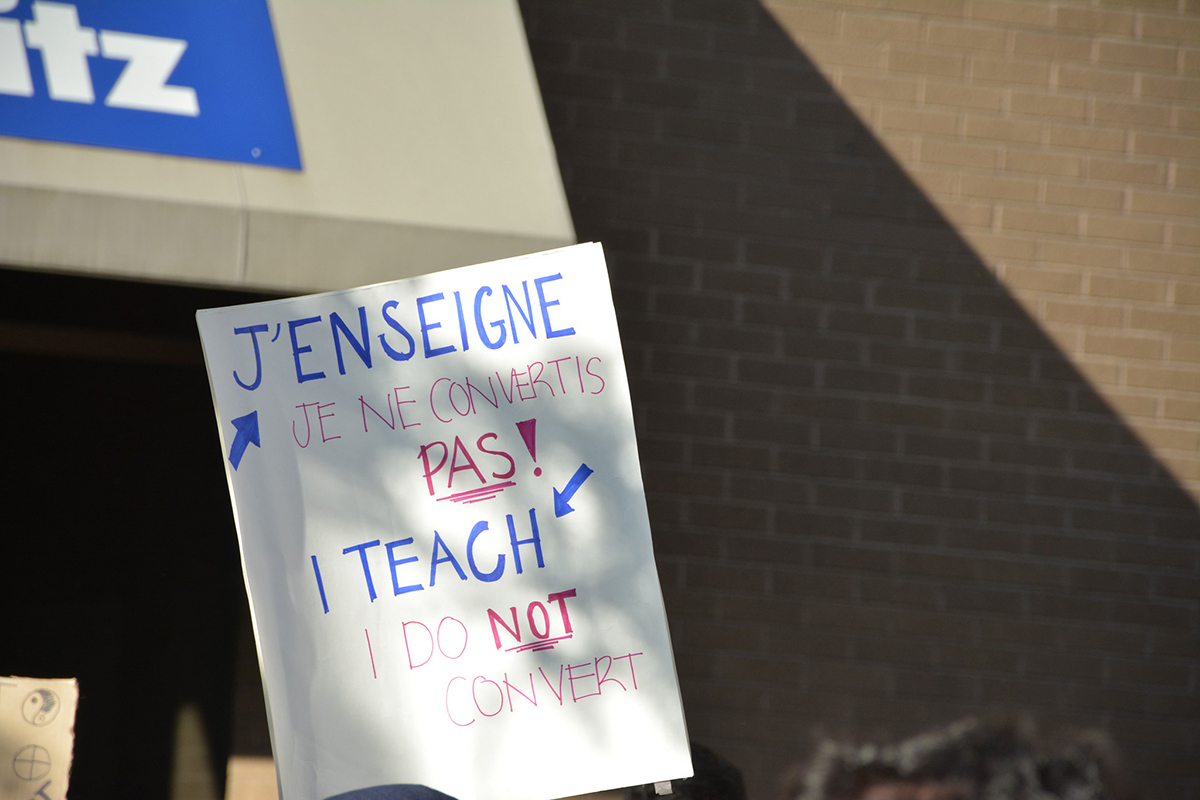 itz
J'ENSEIGNE
JE NE CONVERTIS
PAS!
I TEACH
I DO NOT
CONVERT